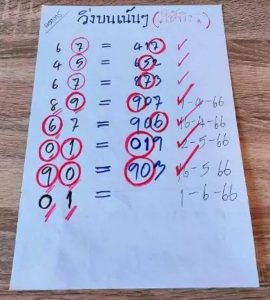 วิ่งบนเน้นๆ
6 7 = 417 ✓
4 5 = 652 ✓
6 7 = 873 ✓
8 9 = 907 1-4-66
6 7 = 906 16-4-66
0 1 = 019 2-5-66
9 0 = 903 16-5-66
0 1 = 1-6-66